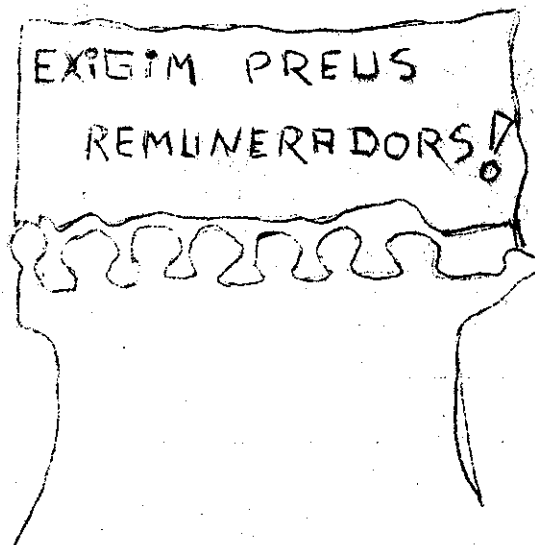 EXiGiM PREUS
REMUNERADORS!